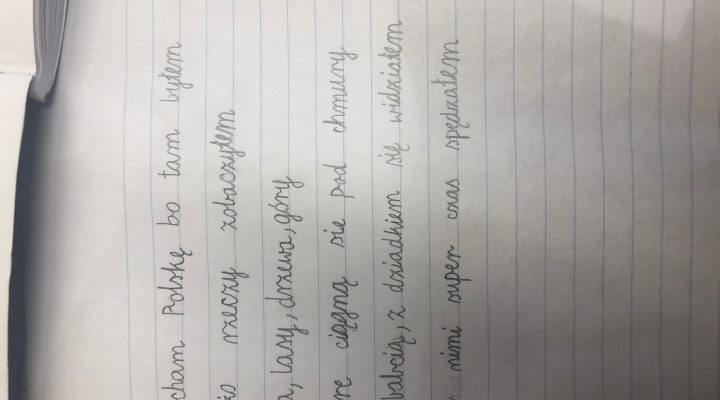 cham Polskę bo tam byłem
żo rzeczy zobaczyłem
a, lasy, drzewa, góry
re ciągną się pod chmury
babcią, z dziadkiem się widziałem
nimi super czas spędzałem